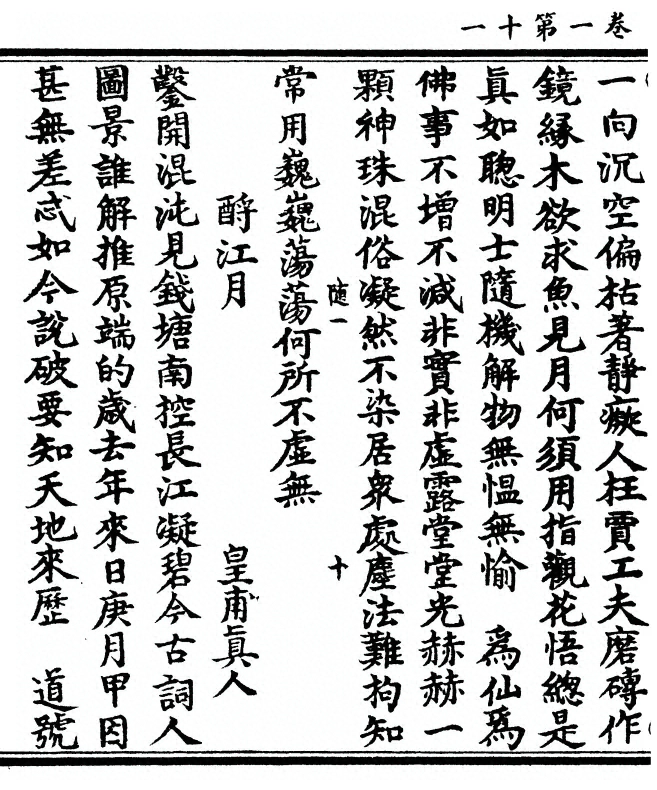 卷一第十一
一向沉空偏枯著靜癡人枉賈工夫磨磚作
鏡緣木欲求魚見月何須用指觀花悟總是
眞如聰明士隨機解物無慍無愉　爲仙爲
佛事不增不減非實非虛露堂堂光赫赫一
顆神珠混俗凝然不染居衆處塵法難拘知
隨一
十
常用巍巍蕩蕩何所不虛無
酹江月
皇甫眞人
鑿開混沌見錢塘南控長江凝碧今古詞人
圖景誰解推原端的歲去年來日庚月甲因
甚無差忒如今說破要知天地來歷　道號